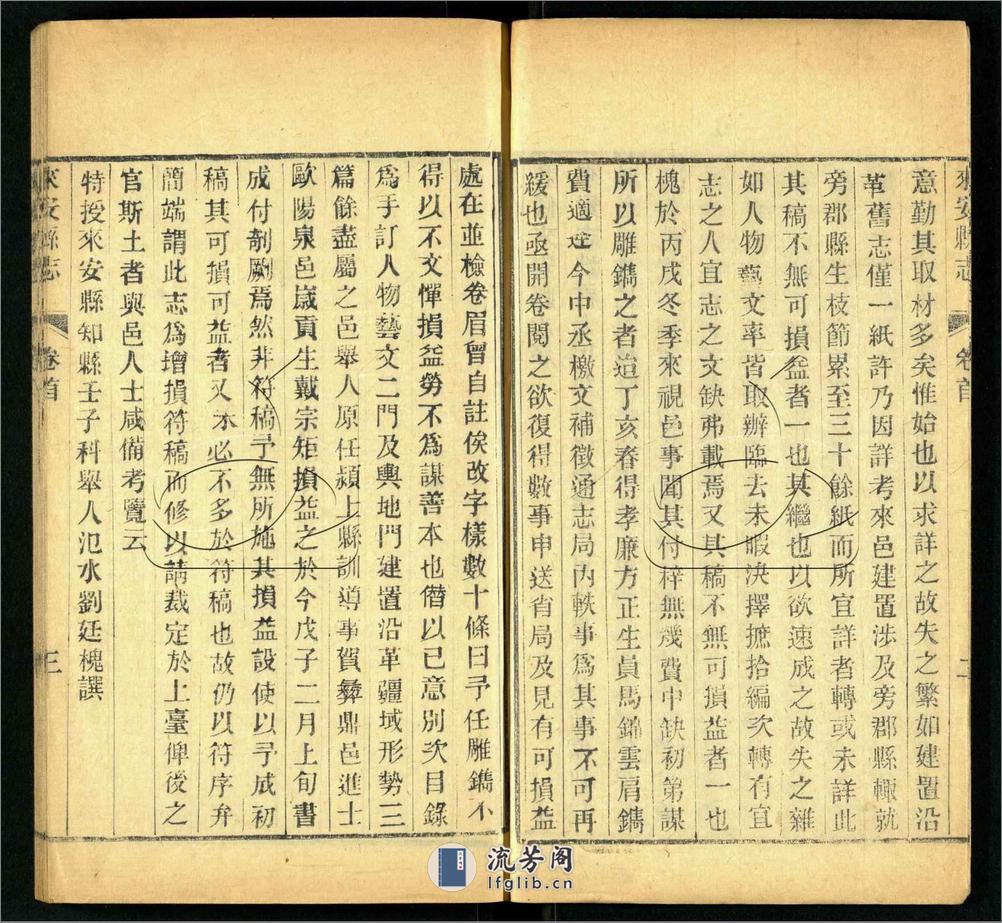 來安縣志
卷首
二
意勤其取材多矣惟始也以求詳之故失之繁如建置沿
革舊志僅一紙許乃因詳考來邑建置涉及旁郡縣輒就
旁郡縣生枝節累至三十餘紙而所宜詳者轉或未詳此
其稿不無可損益者一也其繼也以欲速成之故失之雜
如人物藝文率皆取辦臨去未暇決擇摭拾編次轉有宜
志之人宜志之文缺弗載焉又其稿不無可損益者一也
槐於丙戌冬季來視邑事聞其付梓無幾費中缺初第謀
所以雕鐫之者迨丁亥春得孝廉方正生員馬鏞雲肩鐫
費適 今中丞檄文補徵通志局內軼事為其事不可再
緩也亟開卷閱之欲復得數事申送省局及見有可損益
處在並檢卷眉曾自註俟改字樣數十條曰予任雕鐫不
得以不文憚損益勞不為謀善本也僭以已意別次目錄
為手訂人物藝文二門及輿地門建置沿革疆域形勢三
篇餘盡屬之邑舉人原任潁上縣訓導事賀彝鼎邑進士
歐陽泉邑歲貢生戴宗矩損益之於今戊子二月上旬書
成付剞劂焉然非符稿予無所施其損益設使以予成初
稿其可損可益者又 必不多於符稿也故仍以符序弁
簡端謂此志為增損符稿而修以請裁定於上臺俾後之
官斯土者與邑人士咸備考覽云
特授來安縣知縣壬子科舉人氾水劉廷槐譔
來安縣志
卷首
三
流芳阁
lfglib.cn